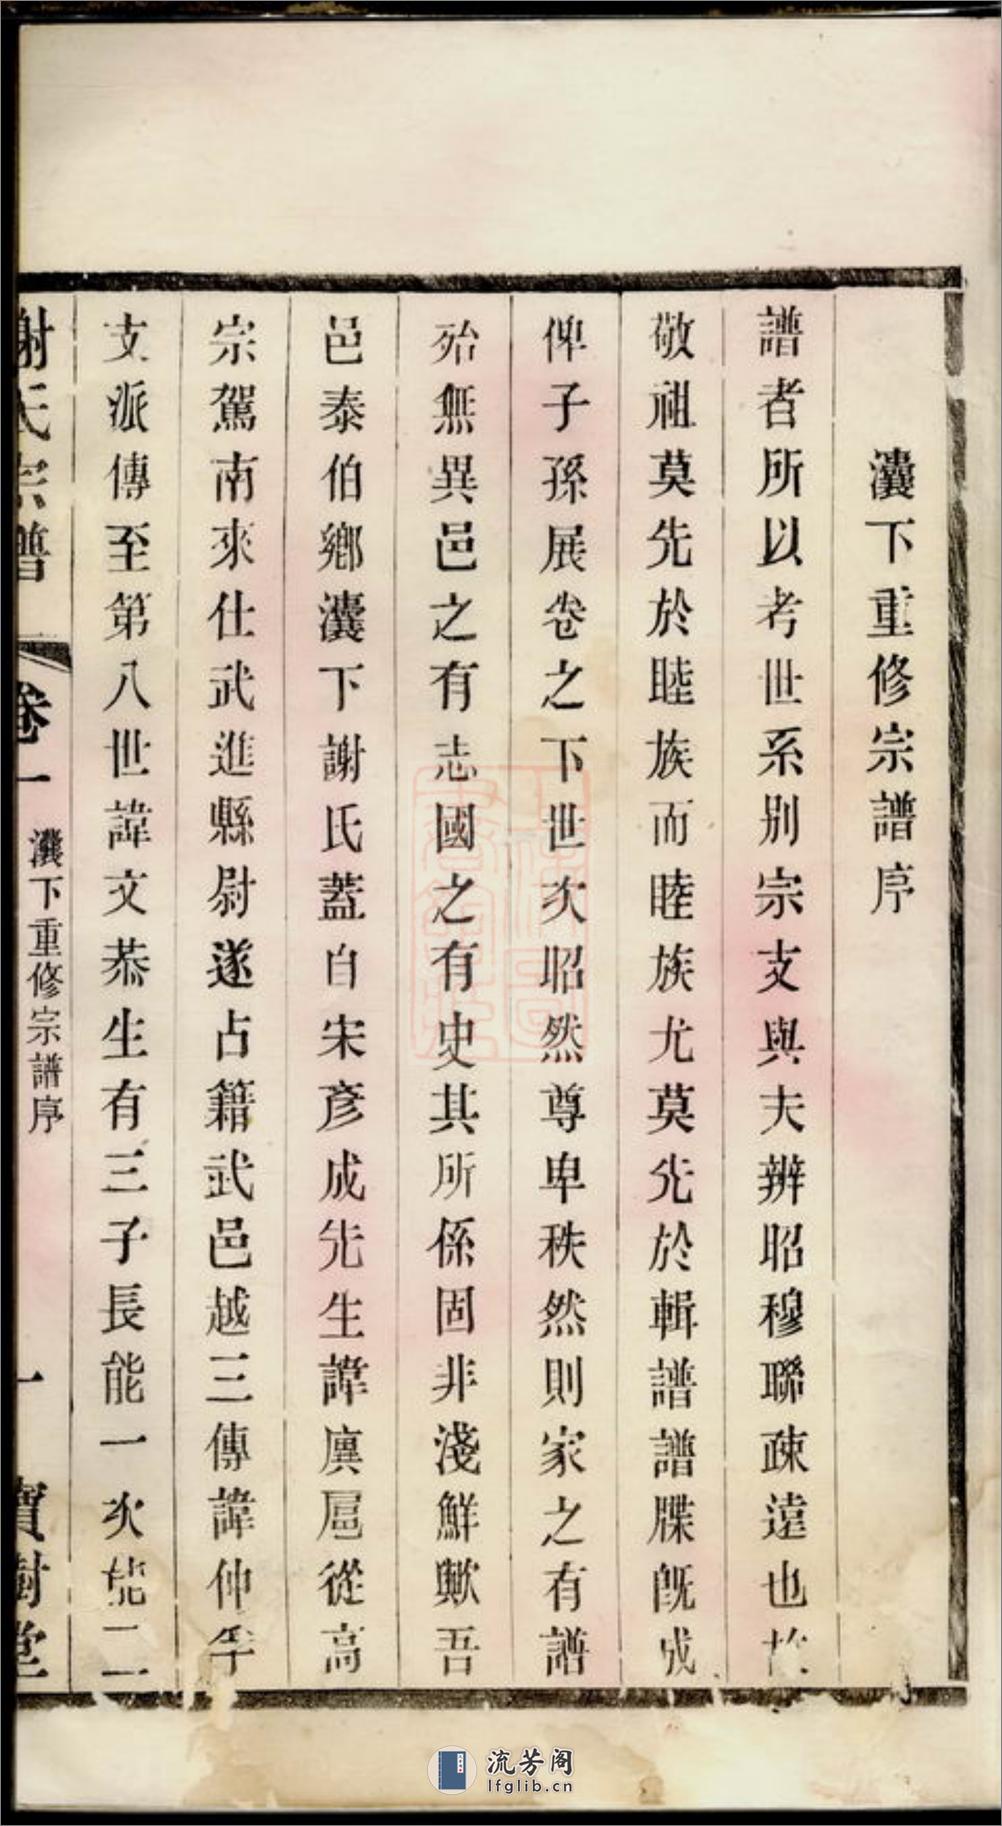 瀼下重修宗譜序
譜者所以考世系別宗支與夫辨昭穆聯疎遠也故
敬祖莫先於睦族而睦族尤莫先於輯譜譜牒旣成
俾子孫展卷之下世次昭然尊卑秩然則家之有譜
殆無異邑之有志國之有史其所係固非淺鮮歟吾
邑泰伯鄉瀼下謝氏蓋自宋彥成先生諱廙扈從高
宗駕南來仕武進縣尉遂占籍武邑越三傳諱仲孚
支派傳至第八世諱文恭生有三子長能一次能二
謝氏宗譜
卷一
瀼下重修宗譜序
一
寶樹堂
流芳阁
lfglib.cn